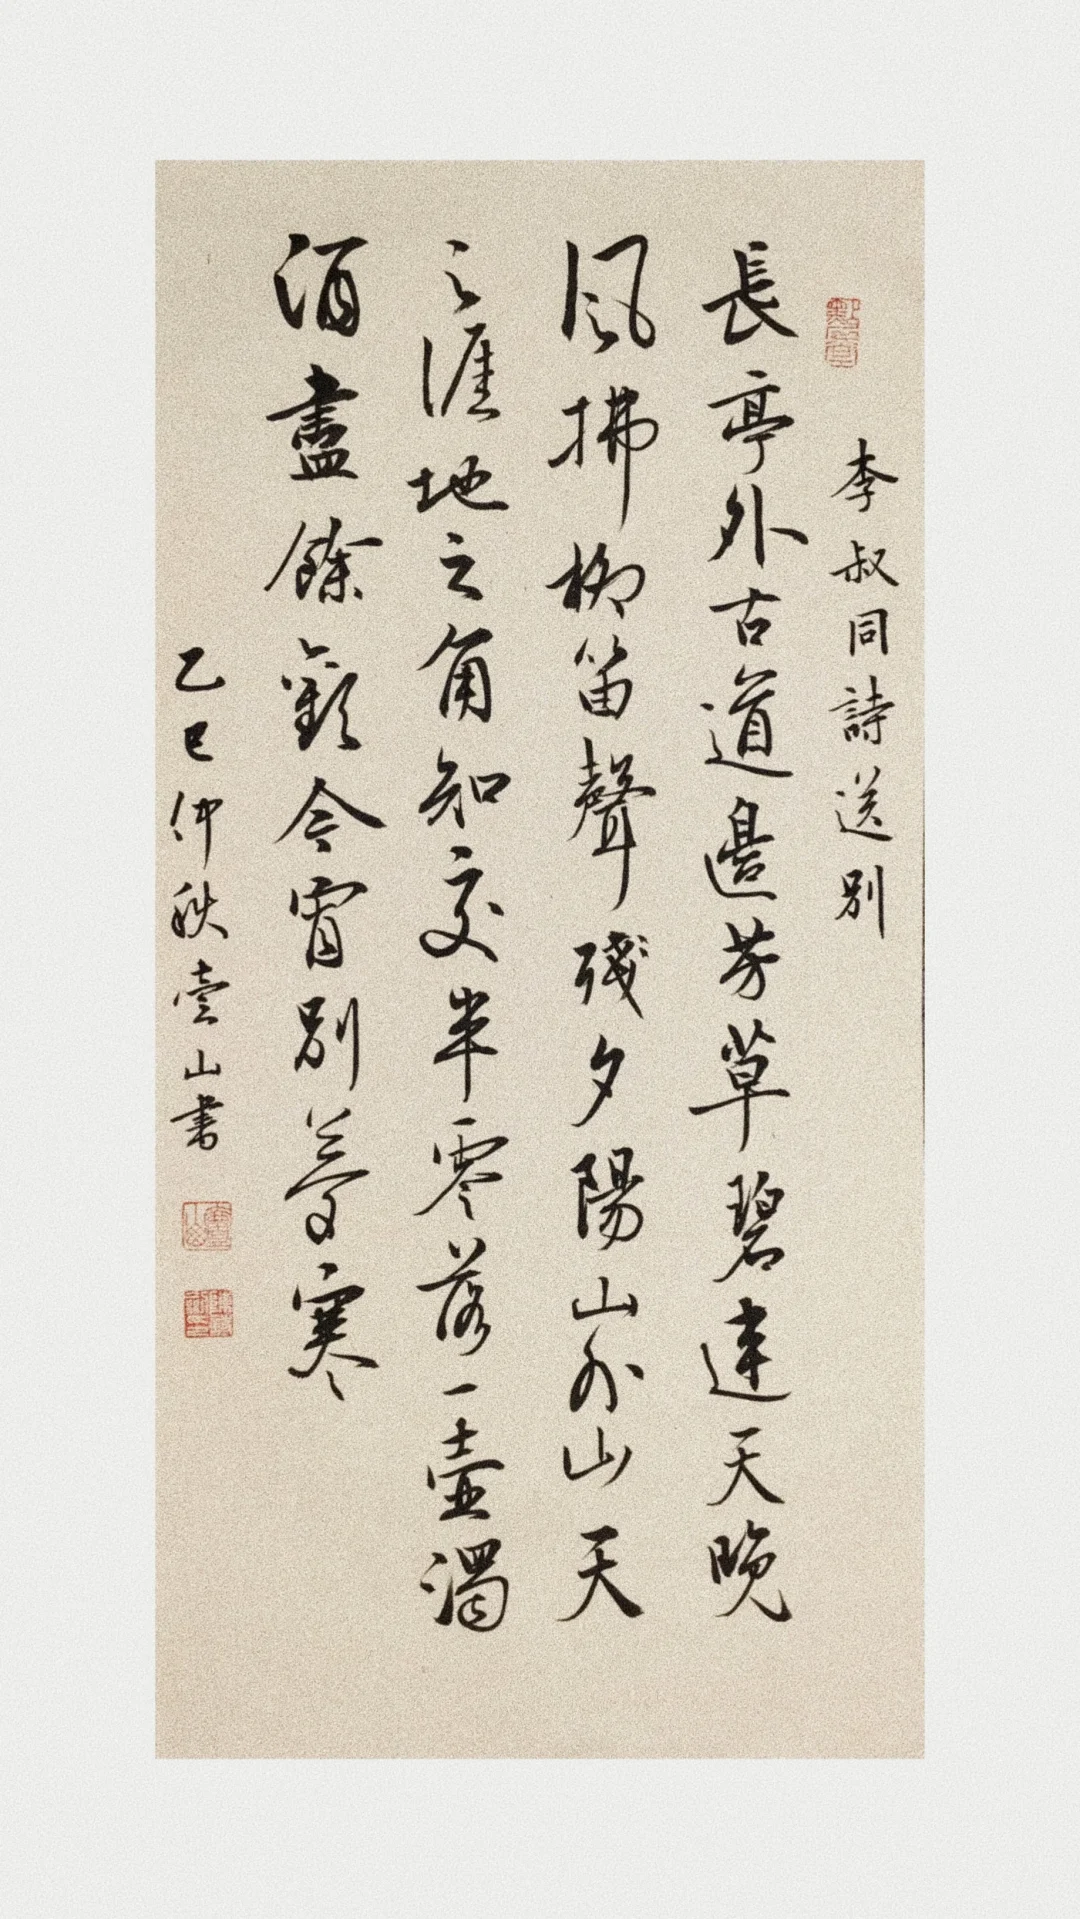 李叔同詩送別
長亭外古道邊芳草碧連天晚
風拂柳笛聲殘夕陽山外山天
之涯地之角知交半零落一壺濁
酒盡餘歡今宵別夢寒
乙巳仲秋壹山書